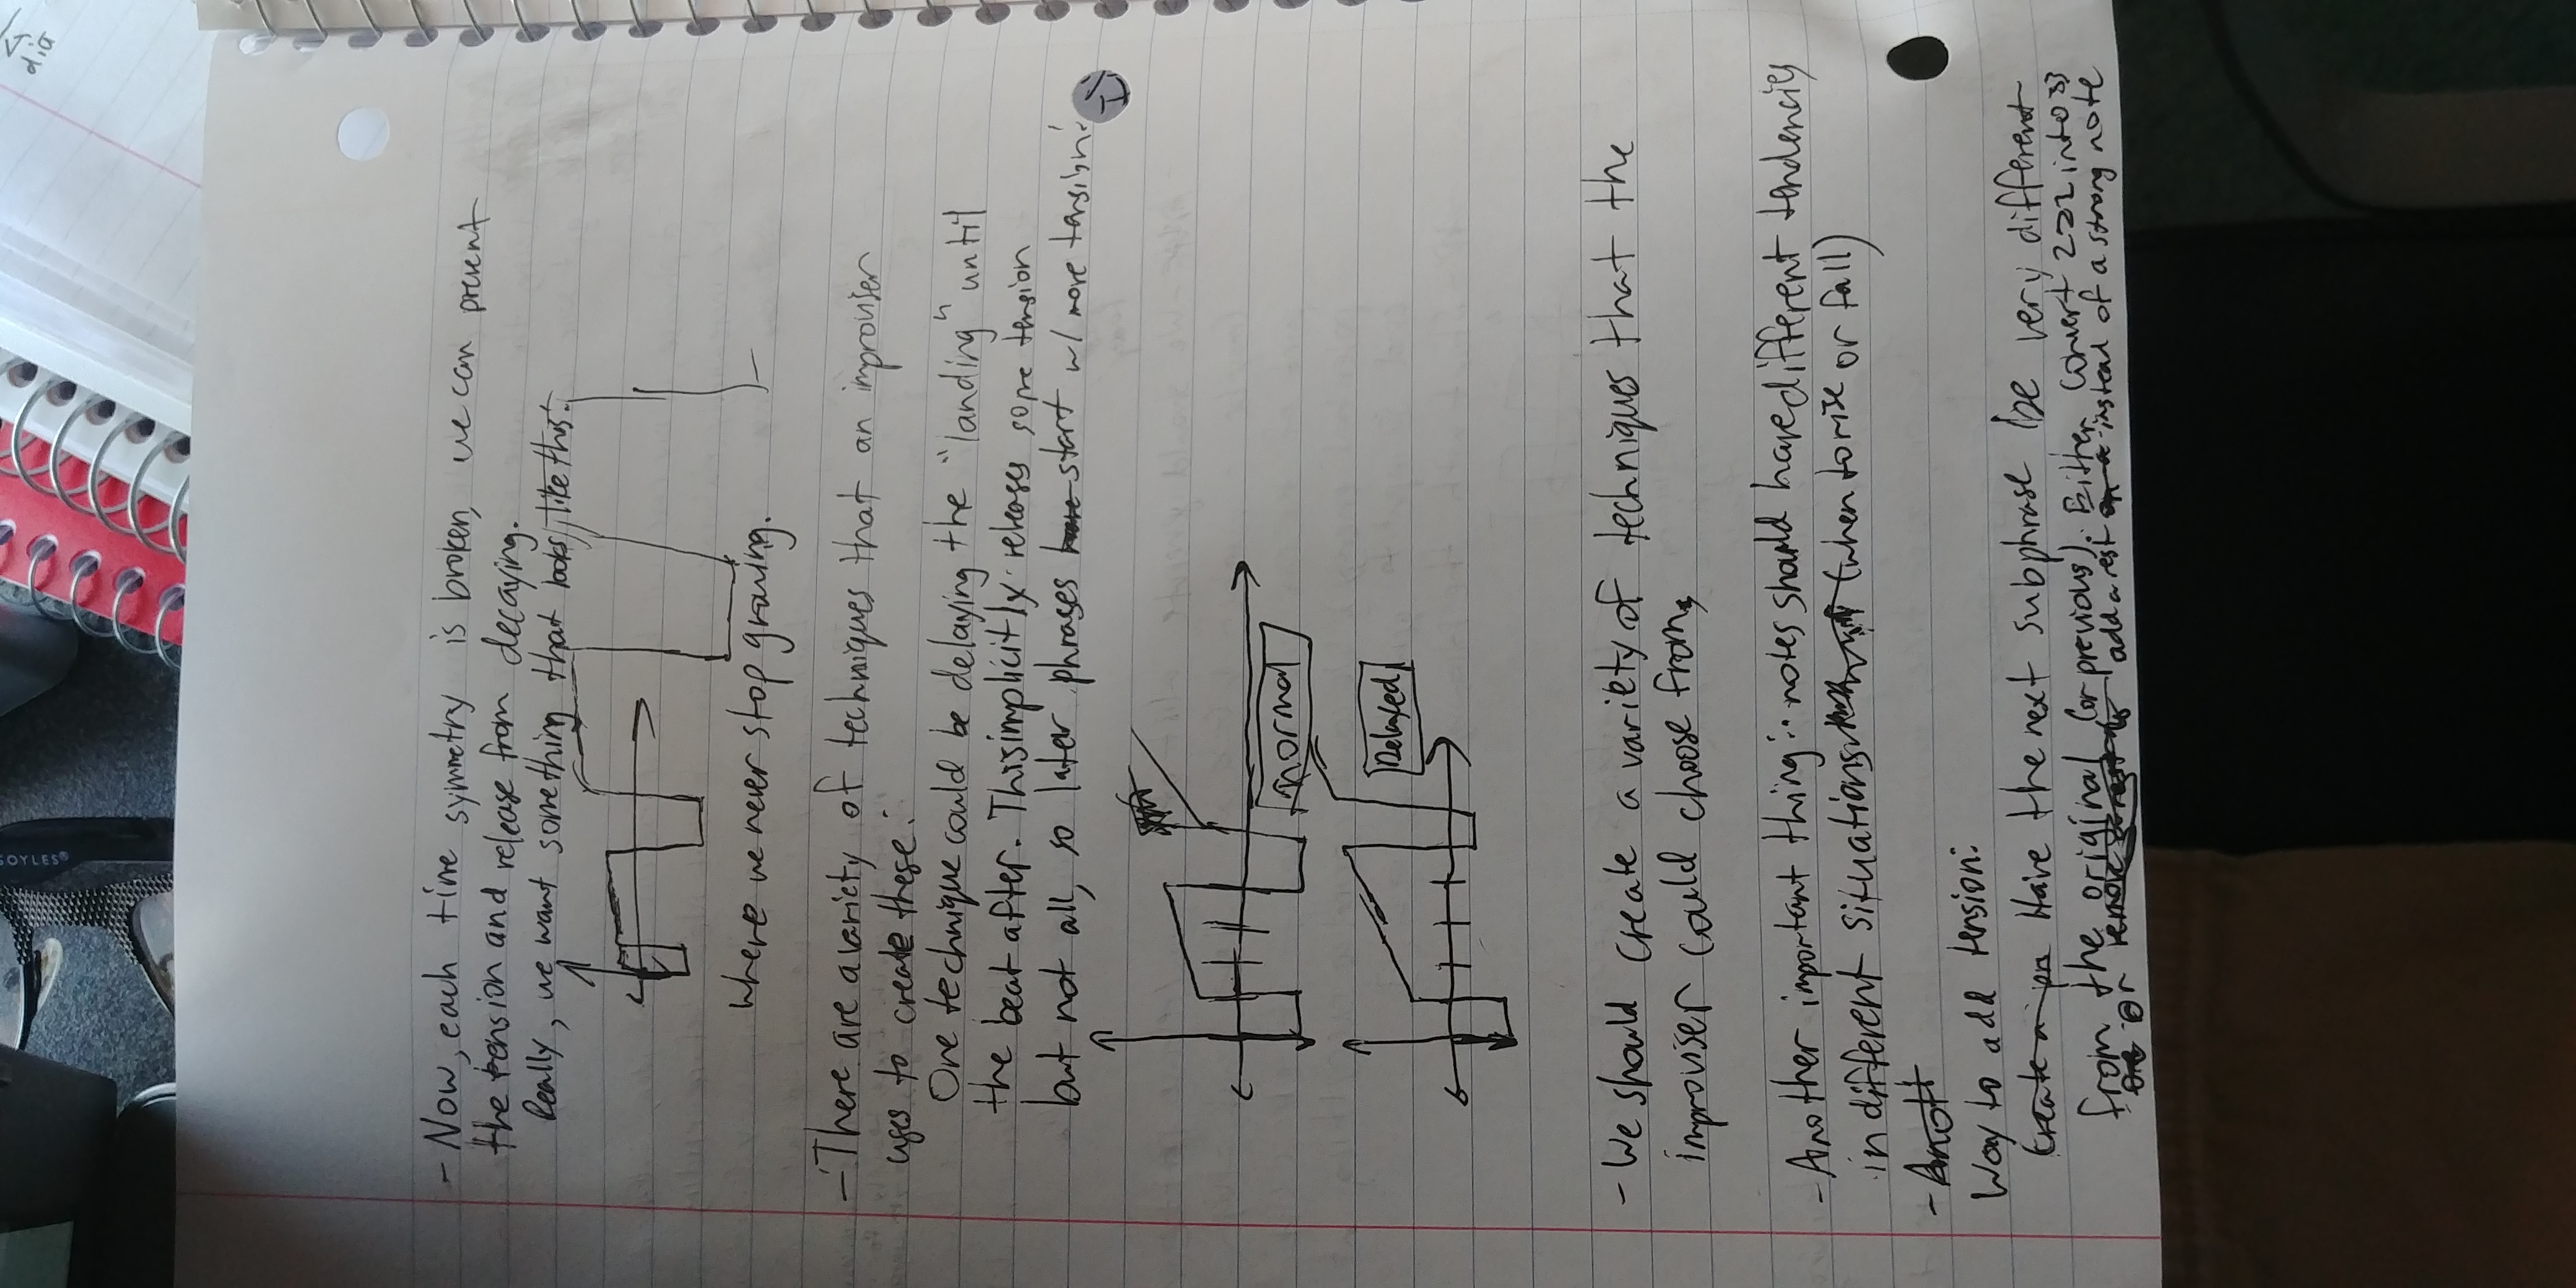 SOYLES
dia
- Now, each time symmetry is broken, we can prevent
the tension and release from decaying.
Really, we want something that looks like this:
where we never stop growing.
- There are a variety of techniques that an improviser
uses to create these:
One technique could be delaying the "landing" until
the beat after. This implicitly releases some tension
but not all, so later phrases have start w/ more tension!
normal
Delayed
- We should create a variety of techniques that the
improviser could choose from.
- Another important thing: notes should have different tendencies
in different situations (when to rise or fall)
- Anott
Way to add tension:
Create a pn Have the next subphrase be very different
from the original (or previous). Either convert 2221 into 33
or add a rest instead of a strong note